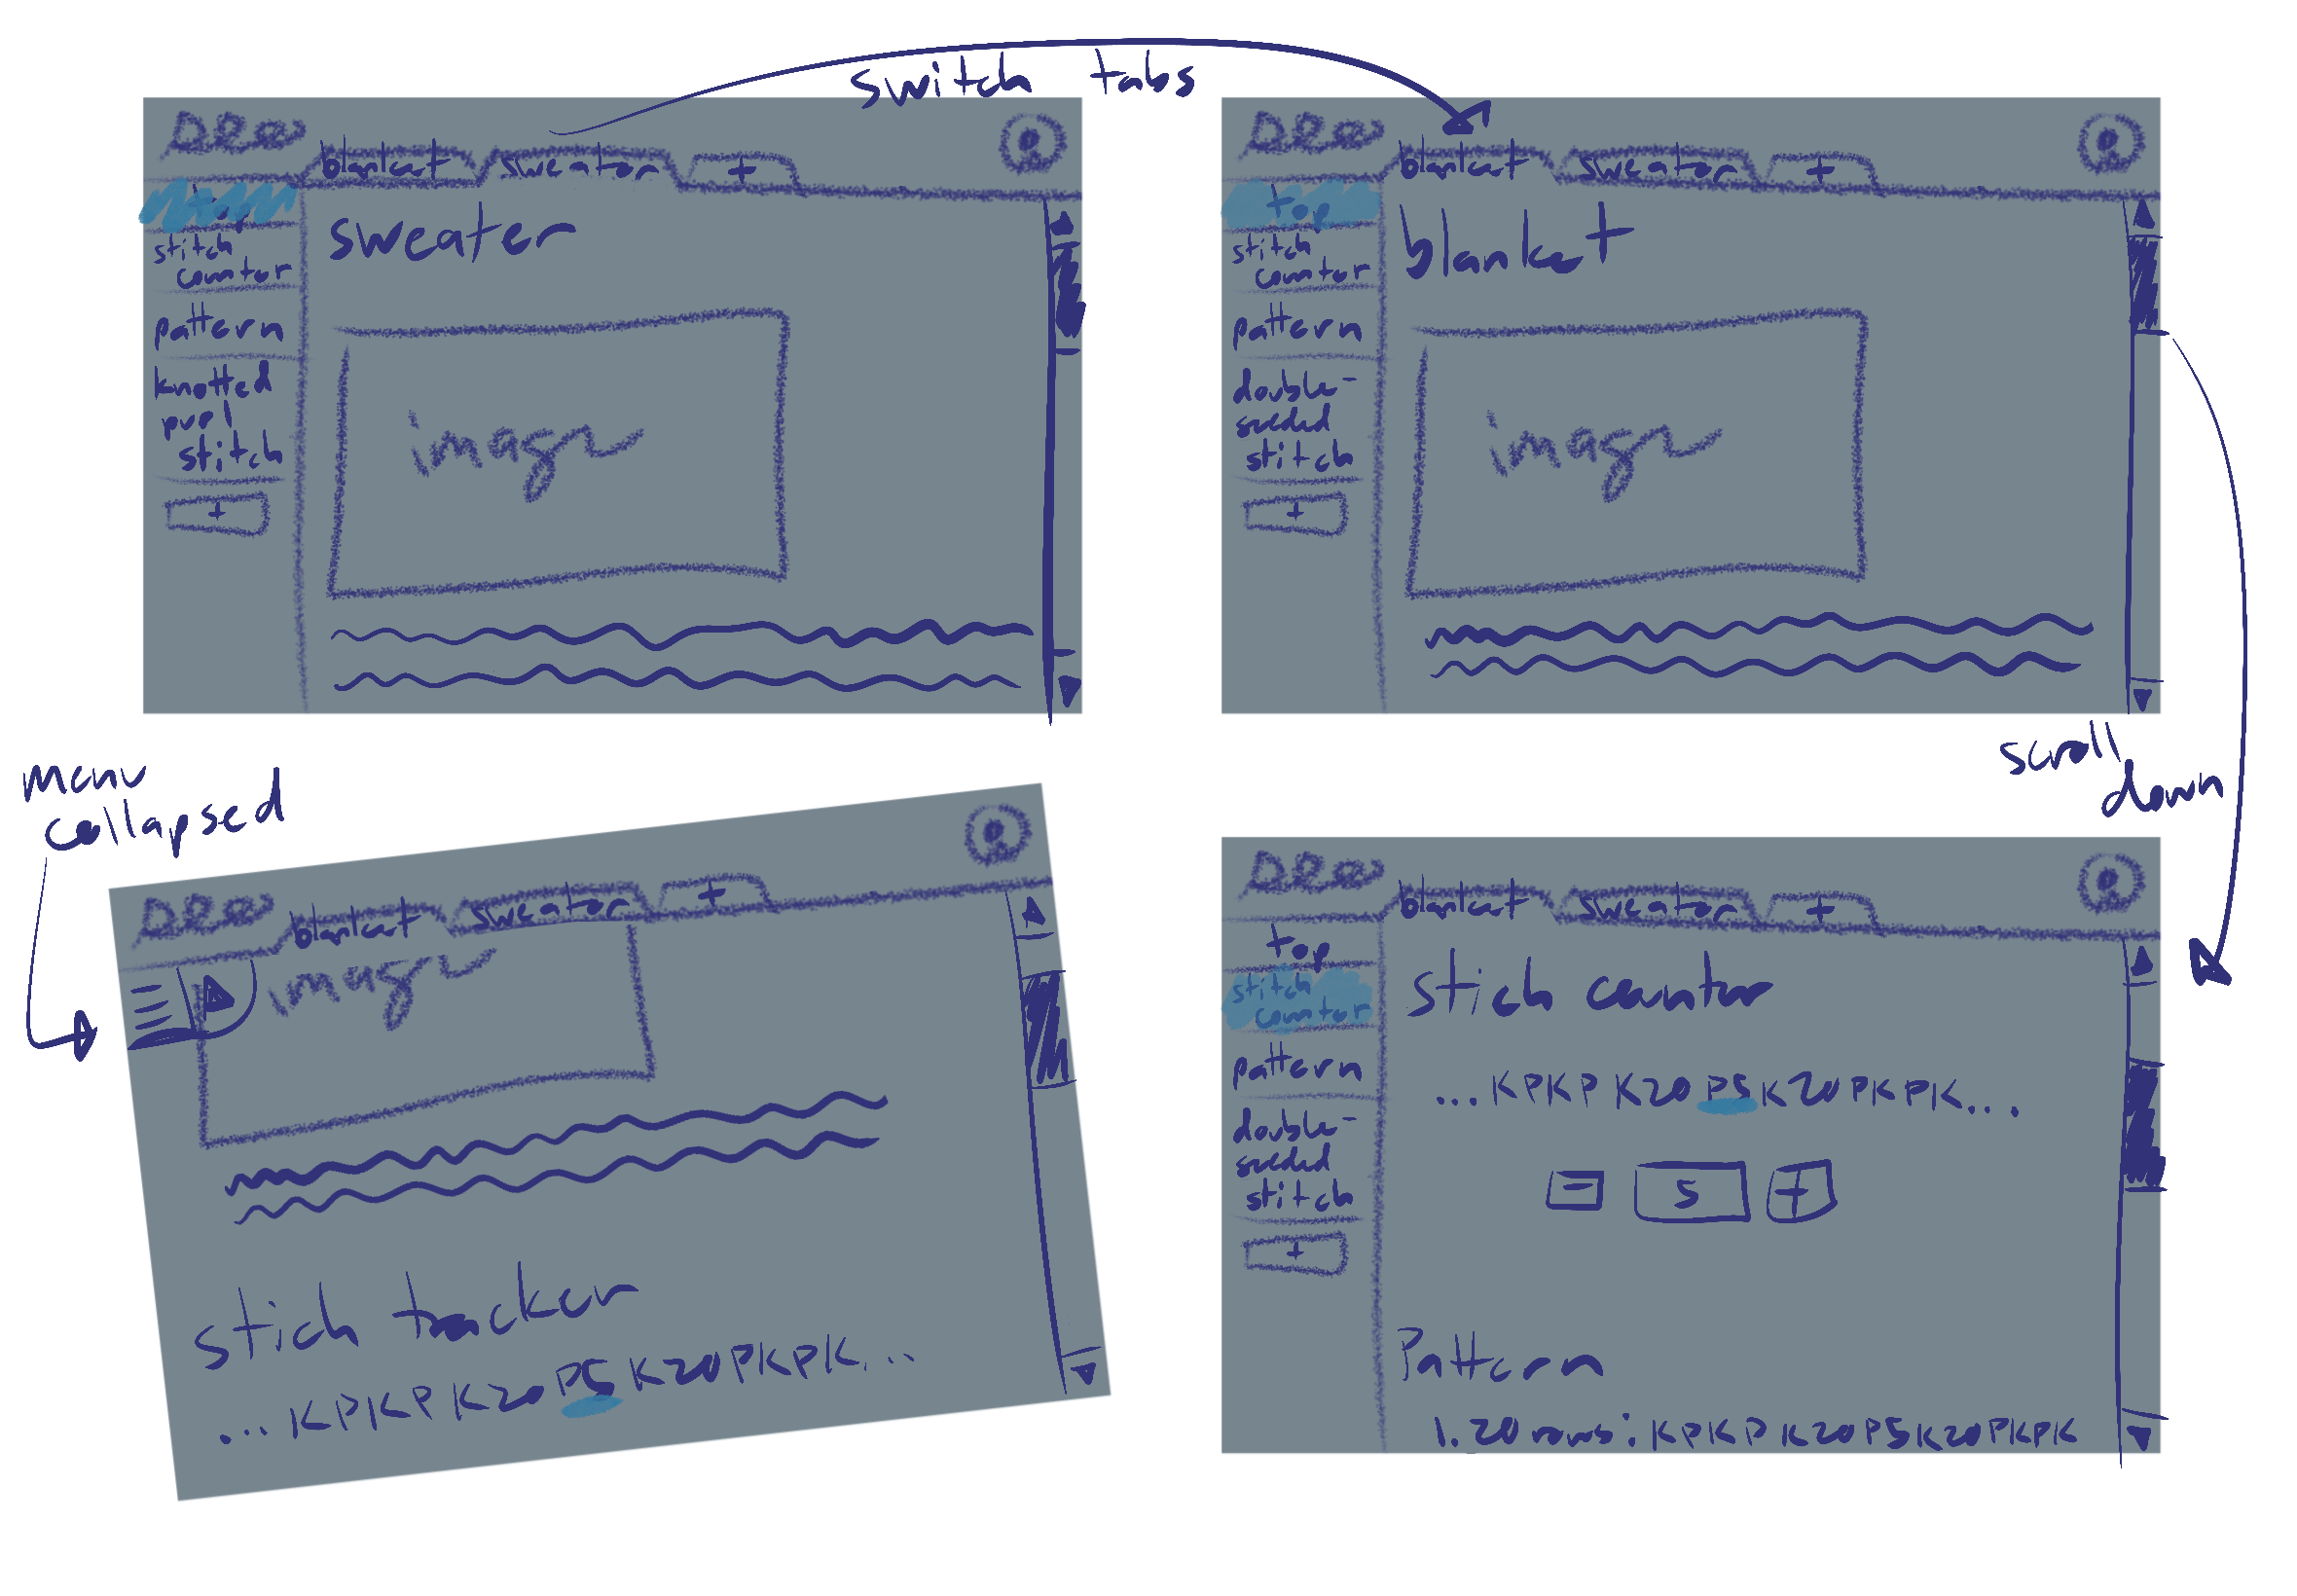 switch tabs
blanket sweator +
top
stitch
countor
pattern
knotted
purl
stitch
+
sweater
image
blanket sweator +
top
stitch
countor
pattern
double-
seeded
stitch
+
blanket
image
scroll
down
menu
collapsed
blanket sweator +
image
stich tracker
...KPKP K20 P5 K20PKPK...
blanket sweator +
top
stitch
countor
pattern
double-
seeded
stitch
+
stich counter
...KPKP K20 P5 K20 PKPK...
- 5 +
Pattern
1. 20 rows: KPKP K20P5K20PKPK